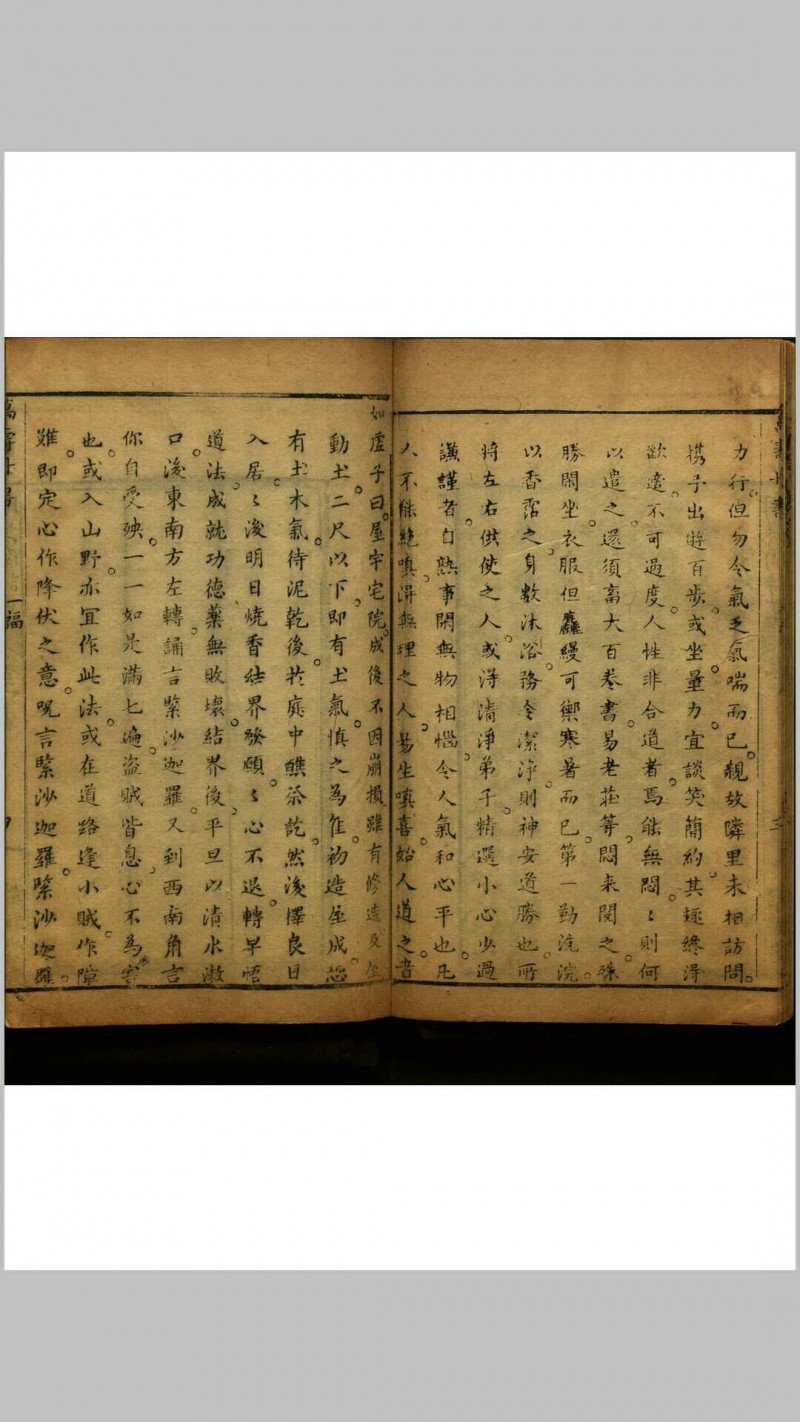 力行但勿令氣乏氣喘而已親故隣里未相訪問
携手出遊百步或坐量力宜談笑簡約其趣終淂
歡適不可過度人性非合道者焉能無悶〻則何
以遣之還須畜大百卷書易老莊等悶来閱之殊
勝閑坐衣服但麤縵可禦寒暑而已第一勤洗浣
以香霑之身数沐浴務令潔淨則神安道勝也所
将左右供使之人或淂清淨弟子精選小心少過
謙謹者自熟事閑無物相惱令人氣和心平也凡
人不能絶嗔淂無理之人昜生嗔喜始人道之書
如虚子曰屋宇宅院成後不因崩損雖有修造及屋
動土二尺以下即有土氣慎之為佳初造屋成恐
有土木氣待泥乾後扵庭中醮祭訖然後擇良日
入居〻後明日燒香結界發願〻心不退轉早悟
道法成就功德藥無敗壞結界後平旦以清水漱
口後東南方左轉誦言緊沙迦羅又到西南角言
你自受殃一一如是滿七遍盗賊皆息心不為害
也或入山野亦宜作此法或在道路逢小賊作障
難即定心作降伏之意咒言緊沙迦羅緊沙迦羅
福